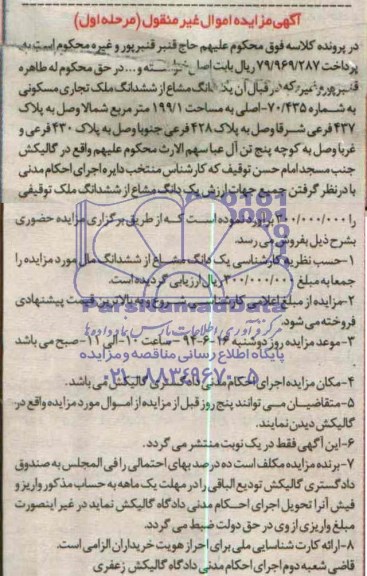 آگهی مزایده اموال غیر منقول (مرحله اول)
در پرونده کلاسه فوق محکوم علیهم حاج قنبر قنبرپور و غیره محکوم است به
پرداخت ۷۹/۹۶۹/۲۸۷ ریال بابت اصل خواسته و... در حق محکوم له طاهره
قنبرپور و غیره که در قبال آن یک دانگ مشاع از ششدانگ ملک تجاری مسکونی
به شماره ۷۰/۴۳۵-اصلی به مساحت ۱۹۹/۱ متر مربع شمالا وصل به پلاک
۴۳۷ فرعی شرقا وصل به پلاک ۴۲۸ فرعی جنوبا وصل به پلاک ۴۳۰ فرعی و
غربا وصل به کوچه پنج تن آل عبا سهم الارث محکوم علیهم واقع در گالیکش
جنب مسجد امام حسن توقیف که کارشناس منتخب دایره اجرای احکام مدنی
با در نظر گرفتن جمیع جهات ارزش یک دانگ مشاع از ششدانگ ملک توقیفی
را ۳۰۰/۰۰۰/۰۰۰ برآورد نموده است که از طریق برگزاری مزایده حضوری
بشرح ذیل بفروش می رسد.
۱-حسب نظریه کارشناسی یک دانگ مشاع از ششدانگ مال مورد مزایده را
جمعا به مبلغ ۳۰۰/۰۰۰/۰۰۰ ریال ارزیابی گردیده است.
۲-مزایده از مبلغ اعلامی کارشناسی شروع و به بالاترین قیمت پیشنهادی
فروخته می شود.
ParsNamadData
مرکز فرآوری اطلاعات پارس نماد داده ها
۳-موعد مزایده روز دوشنبه ۱۶-۶-۹۴ - ساعت ۱۰-الی ۱۱-صبح می باشد
.
پایگاه اطلاع رسانی مناقصه و مزایده
۴-مکان مزایده اجرای احکام مدنی دادگستری گالیکش می باشد.
۰۲۱-۸۸۳۴۹۶۷۰-۵
۵-متقاضیان می توانند پنج روز قبل از مزایده از اموال مورد مزایده واقع در
گالیکش دیدن نمایند.
۶-این آگهی فقط در یک نوبت منتشر می گردد.
۷-برنده مزایده مکلف است ده درصد بهای احتمالی را فی المجلس به صندوق
دادگستری گالیکش تودیع الباقی را در مهلت یک ماهه به حساب مذکور واریز و
فیش آنرا تحویل اجرای احکام مدنی دادگاه گالیکش نماید در غیر اینصورت
مبلغ واریزی از وی در حق دولت ضبط می گردد.
۸-ارائه کارت شناسایی ملی برای احراز هویت خریداران الزامی است.
قاضی شعبه دوم اجرای احکام مدنی دادگاه گالیکش زعفری